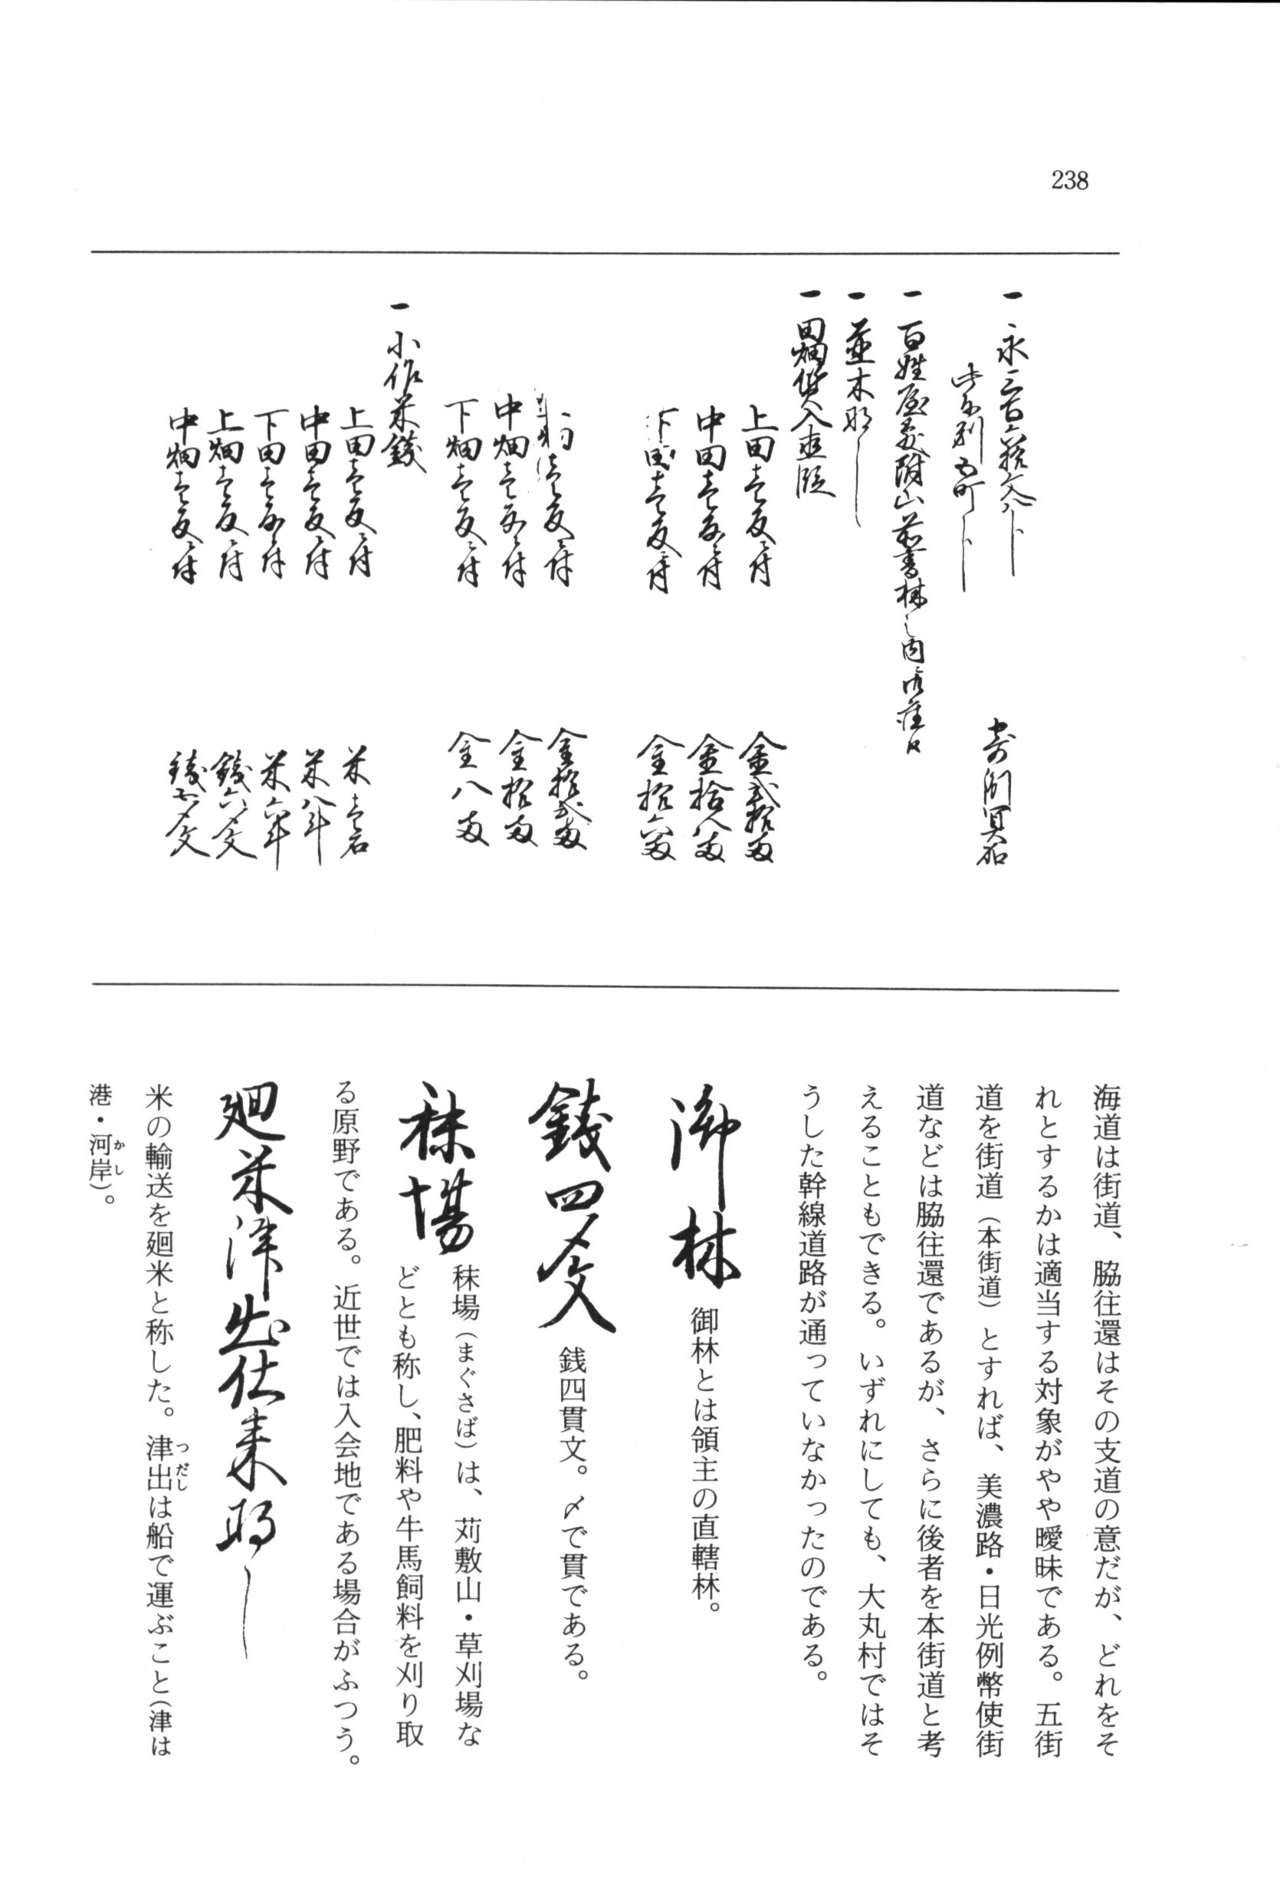 238
一 永三百六拾文八
一 百姓屋敷附山前書林之内
一 並木なし
一 田畑質入直段
上田壱反ニ付 金弐拾両
中田壱反ニ付 金拾八両
下田壱反ニ付 金拾六両
上畑壱反ニ付 金拾弐両
中畑壱反ニ付 金拾両
下畑壱反ニ付 金八両
一 小作米銭
上田壱反ニ付 米壱石
中田壱反ニ付 米八斗
下田壱反ニ付 米六斗
上畑壱反ニ付 銭六〆文
中畑壱反ニ付 銭七〆文
海道は街道、脇往還はその支道の意だが、どれをそ
れとするかは適当する対象がやや曖昧である。五街
道を街道（本街道）とすれば、美濃路・日光例幣使街
道などは脇往還であるが、さらに後者を本街道と考
えることもできる。いずれにしても、大丸村ではそ
うした幹線道路が通っていなかったのである。
御林 御林とは領主の直轄林。
銭四〆文 銭四貫文。〆で貫である。
秣場 秣場（まぐさば）は、苅敷山・草刈場な
どとも称し、肥料や牛馬飼料を刈り取
る原野である。近世では入会地である場合がふつう。
廻米津出仕来なし
米の輸送を廻米と称した。津出は船で運ぶこと（津は
つだし
港・河岸）。
かし